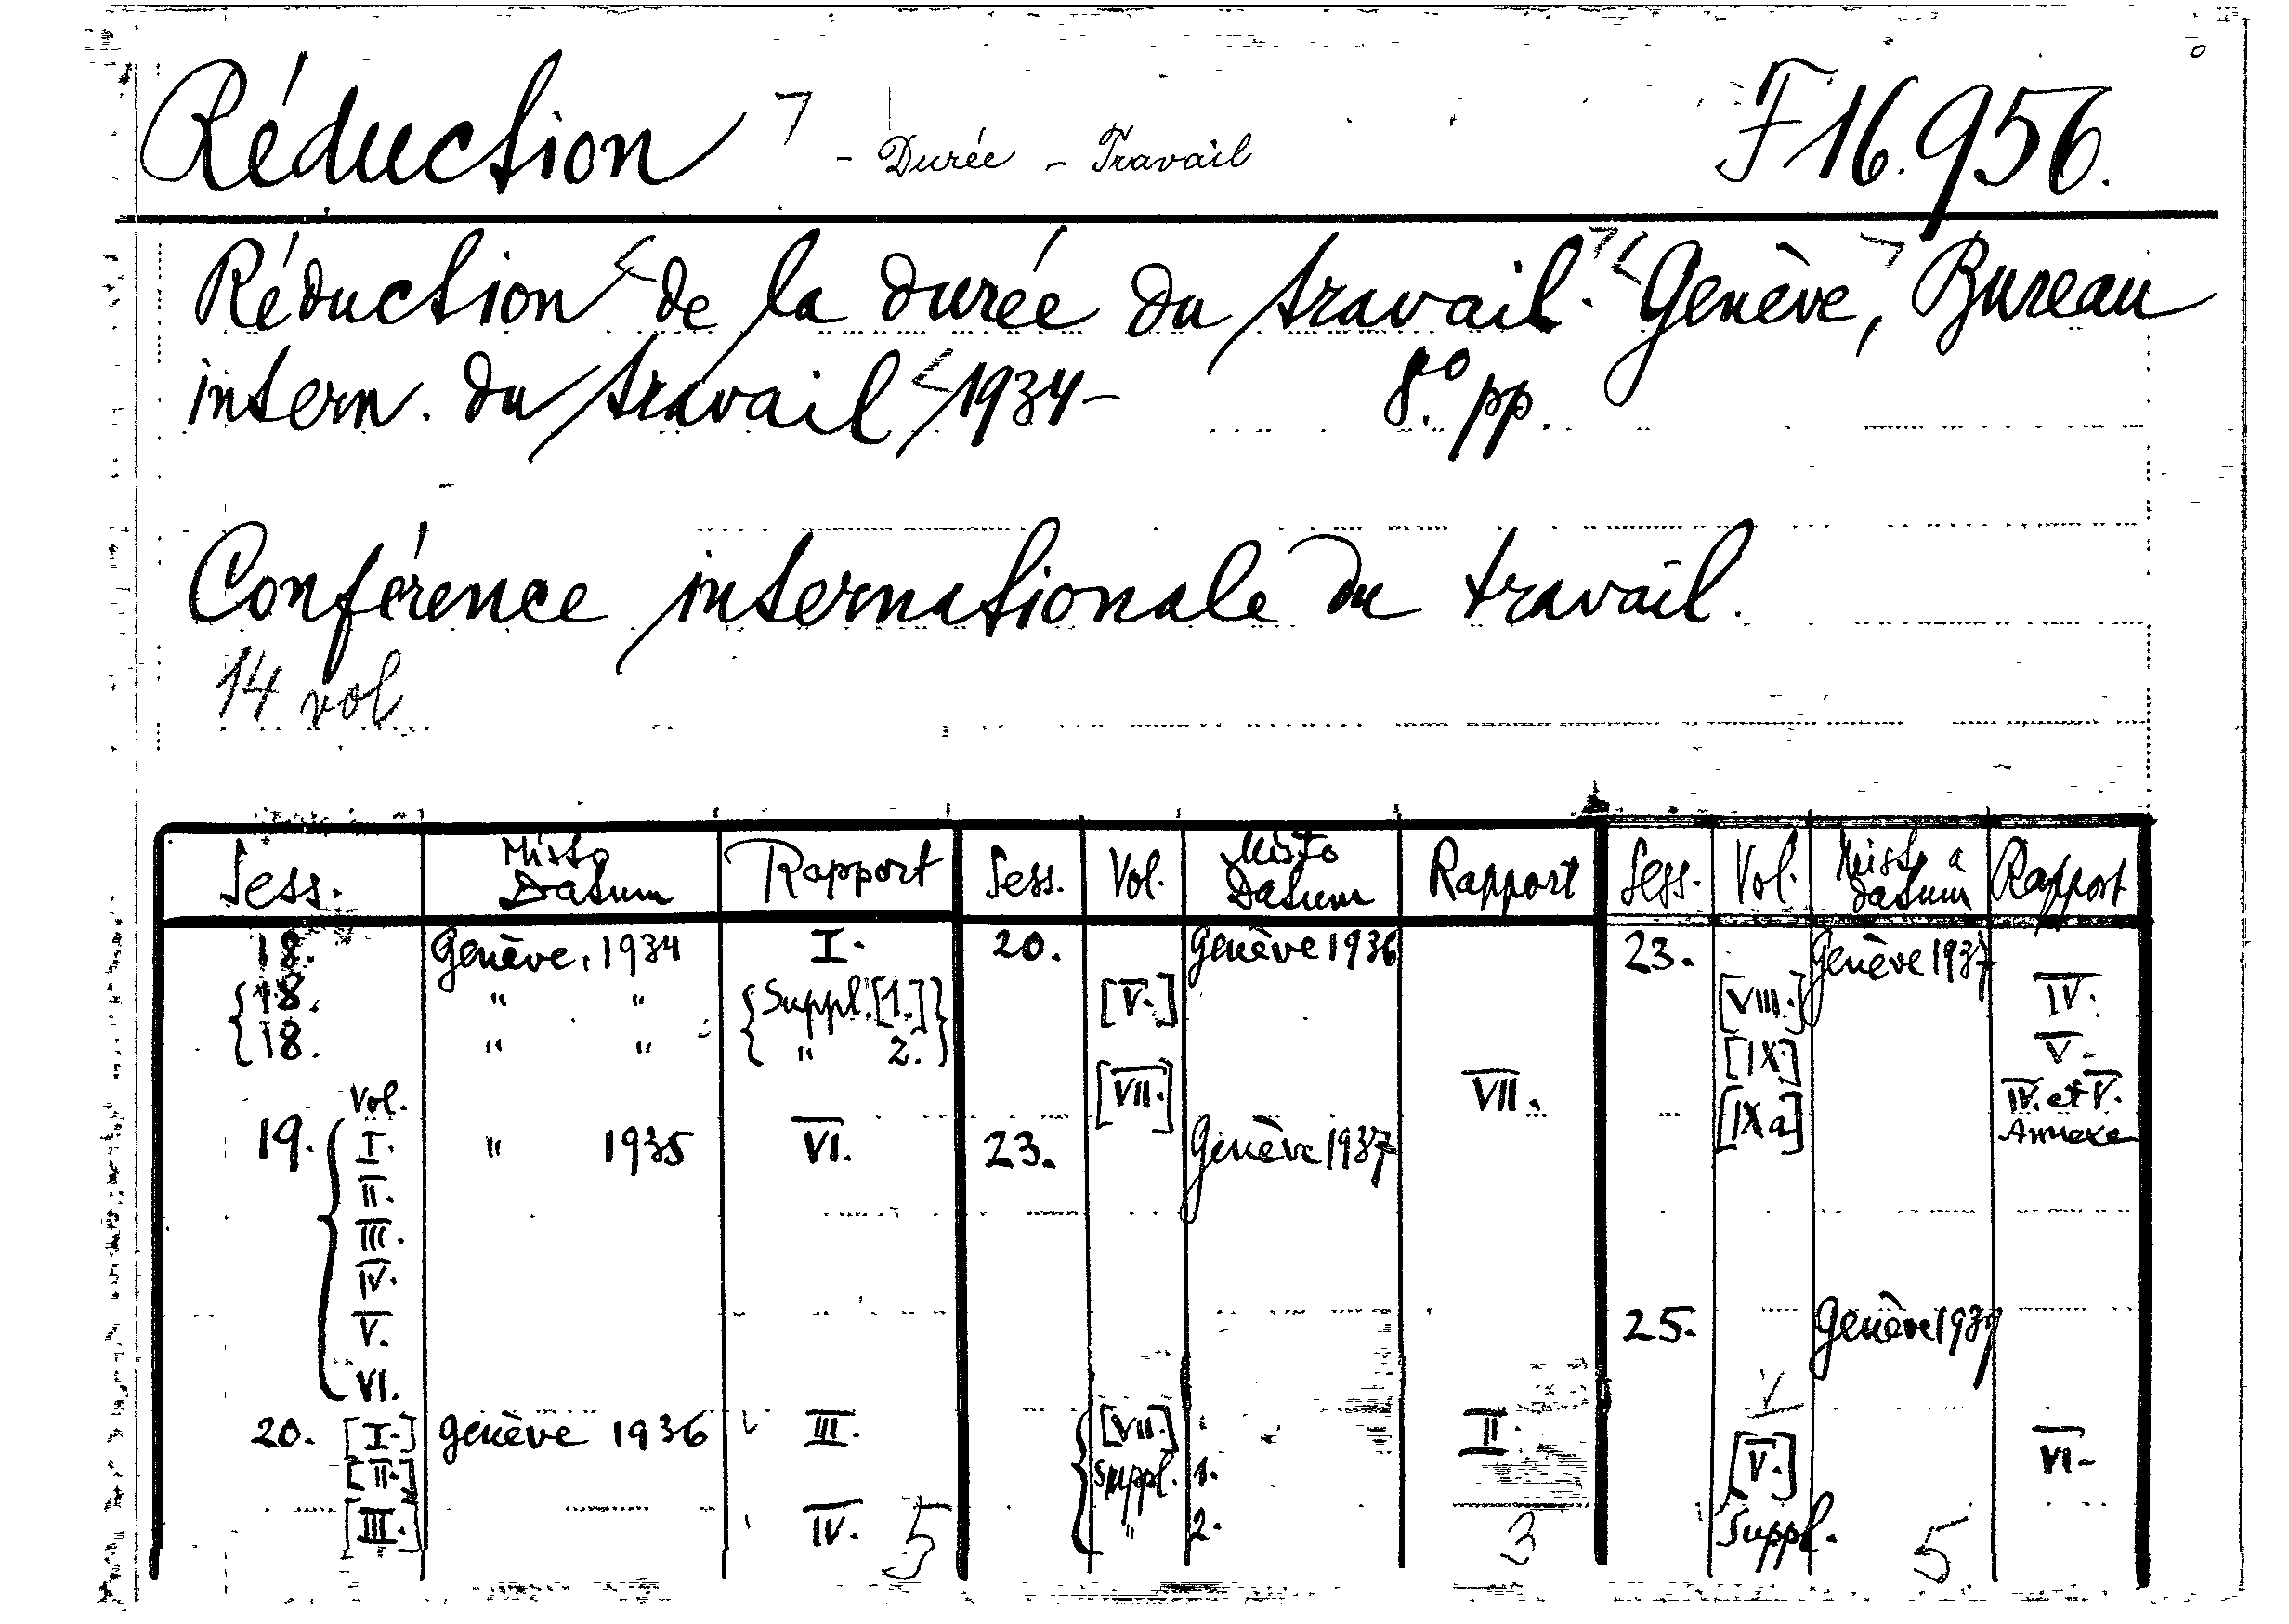 Réduction - Durée - Travail F 16.956.
Réduction de la durée du travail. Genève, Bureau
intern. du travail 1934- 8°. pp.
Conférence internationale du travail.
14 vol
Sess. Místo Datum Rapport Sess. Vol. Místo Datum Rapport Sess. Vol. Místo a datum Rapport
18. Genève, 1934 I. 20. Genève 1936 23. Genève 1937
18. " " Suppl. [1.] [V.] [VIII.] IV.
18. " " " 2. [IX.] V.
Vol. [VII.] VII. [IX a] IV. et V.
19. I. " 1935 VI. 23. Genève 1937 Annexe
II.
III.
IV.
V. 25. Genève 1939
VI.
20. [I.] Genève 1936 III. [VII.] II. [V.] VI.
[II.] Suppl. 1.
[III.] IV. 5 " 2. 3 Suppl. 5